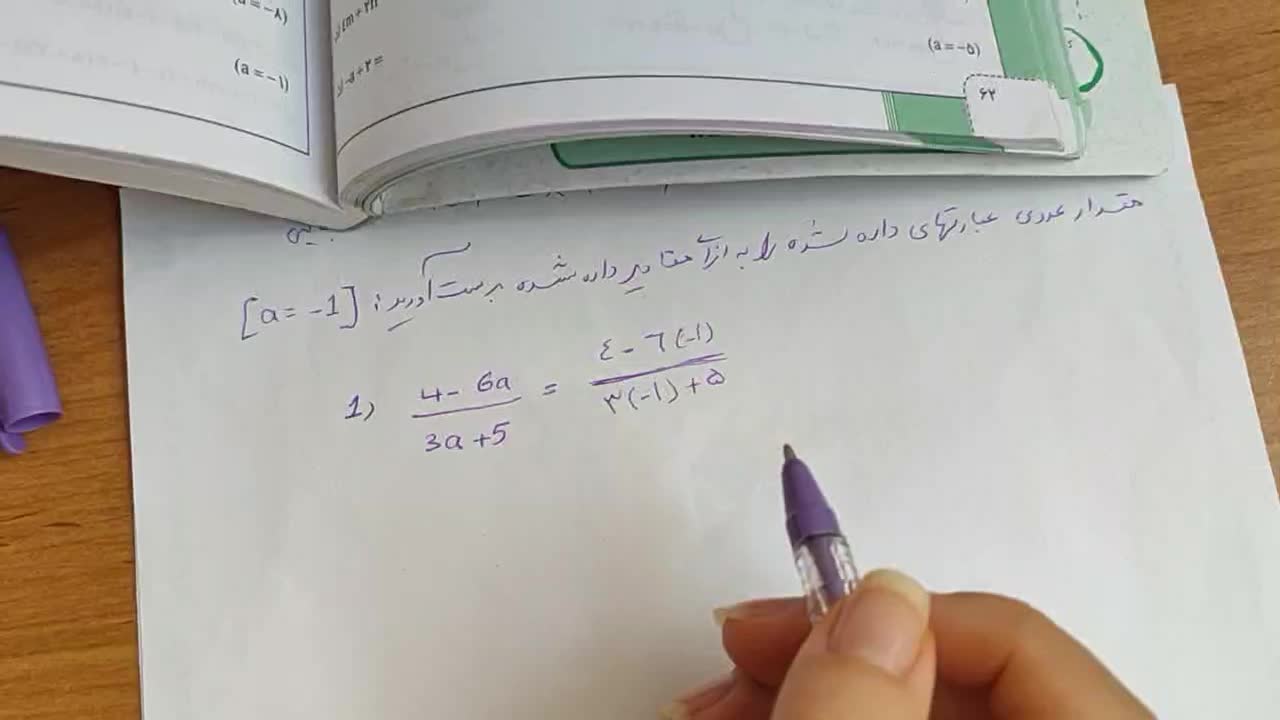 (a = -۸)
(a = -۱)
-a + ۲ =
(a = -۵)
۶۲
مقدار عددی عبارتهای داده شده را به ازای مقادیر داده شده بدست آورید: [a = -1]
1) (4 - 6a)/(3a + 5) = (٤ - ٦(-۱))/(۳(-۱) + ۵)